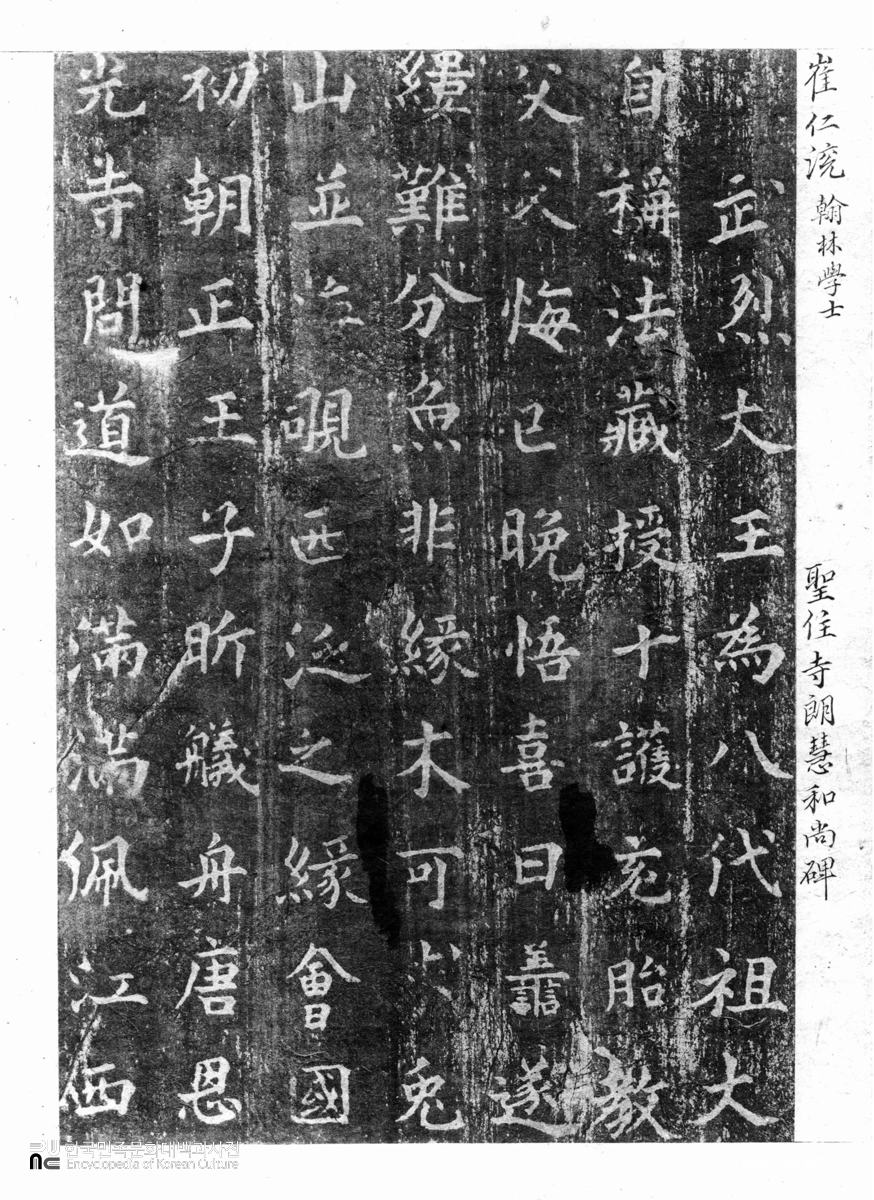 崔仁渷 翰林學士
聖住寺朗慧和尚碑
武烈大王為八代祖大
自稱法藏授十護充胎教
父父悔已晚悟喜曰譱遂
縷難分魚非緣木可兔
山並覗西泛之緣會國
初朝正王子昕艤舟唐恩
光寺問道如滿滿佩江西
한국민족문화대백과사전
Encyclopedia of Korean Culture